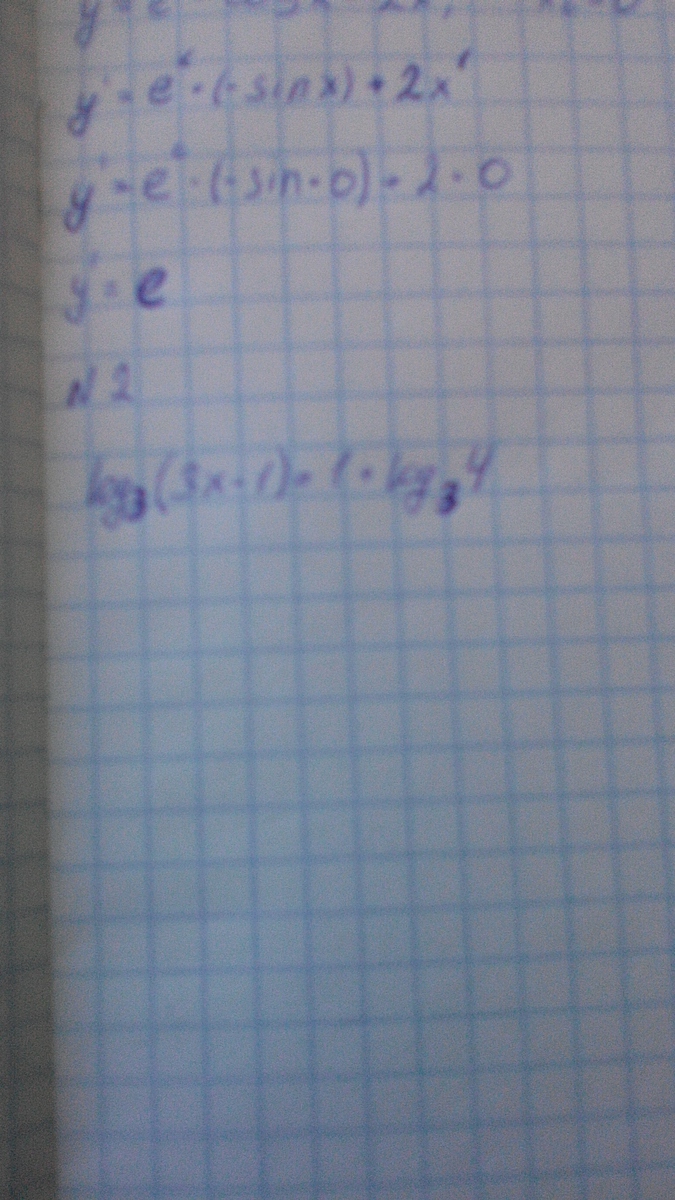 y' = e^x · (-sin x) + 2x'
y' = e^x · (-sin · 0) + 2 · 0
y' = e
N 2
log₃(3x-1) = 1 + log₃4